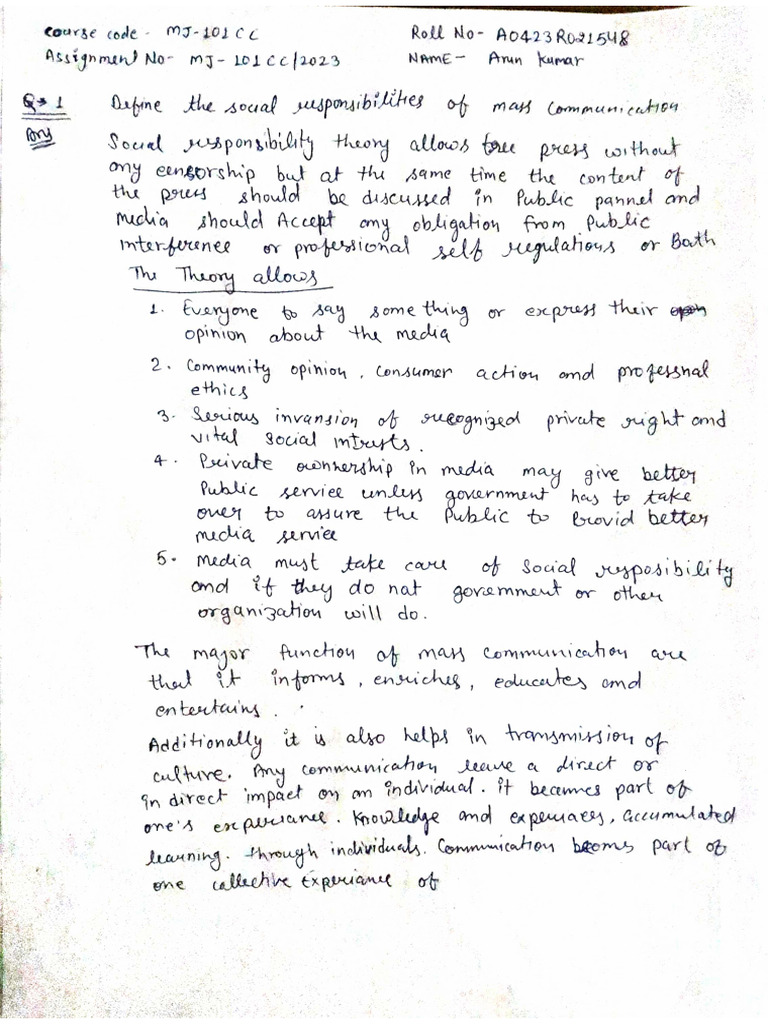 Course code - MJ-101CC Roll No- A0423R021548
Assignment No- MJ-101CC/2023 NAME- Arun Kumar
Q→1 Define the social responsibilities of mass communication
Ans Social responsibility theory allows free press without
any censorship but at the same time the content of
the press should be discussed in Public pannel and
media should Accept any obligation from Public
Interference or professional self regulations or Bath
The Theory allows
1. Everyone to say something or express their
opinion about the media
2. Community opinion, consumer action and professnal
ethics
3. Serious invansion of recognized private right and
vital social intrusts.
4. Private ownnership in media may give better
Public service unless government has to take
over to assure the Public to Provid better
media service
5. Media must take care of Social resposibility
and if they do nat government or other
organization will do.
The major function of mass communication are
that it informs, enriches, educates and
entertains.
Additionally it is also helps in transmission of
culture. Any communication leave a direct or
in direct impact on an individual. it becomes part of
one's experiance. Knowledge and , accumulated
learning. through individuals. Communication becoms part of
one callective Experiance of